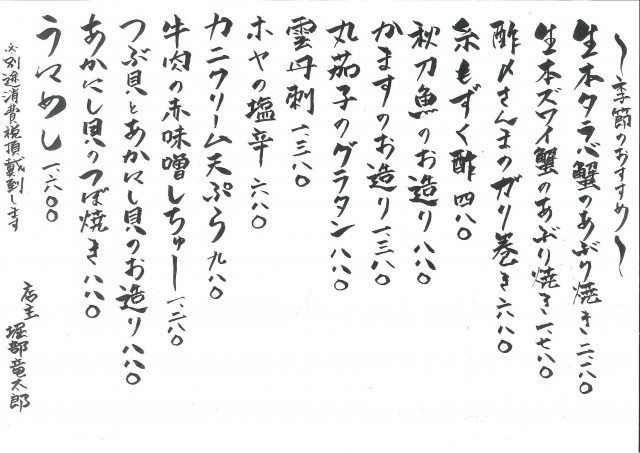 〜季節のおすすめ〜
生本タラバ蟹のあぶり焼き 二、二八〇
生本ズワイ蟹のあぶり焼き 一、七八〇
酢〆さんまのガリ巻き 六八〇
糸もずく酢 四八〇
秋刀魚のお造り 八八〇
かますのお造り 一、三八〇
丸茄子のグラタン 八八〇
雲丹刺 一、三八〇
ホヤの塩辛 六八〇
カニクリーム天ぷら 九八〇
牛肉の赤味噌しちゅー 一、二八〇
つぶ貝とあかにし貝のお造り 八八〇
あかにし貝のつぼ焼き 八八〇
うにめし 一、六〇〇
※別途消費税頂戴致します
店主 堀部竜太郎